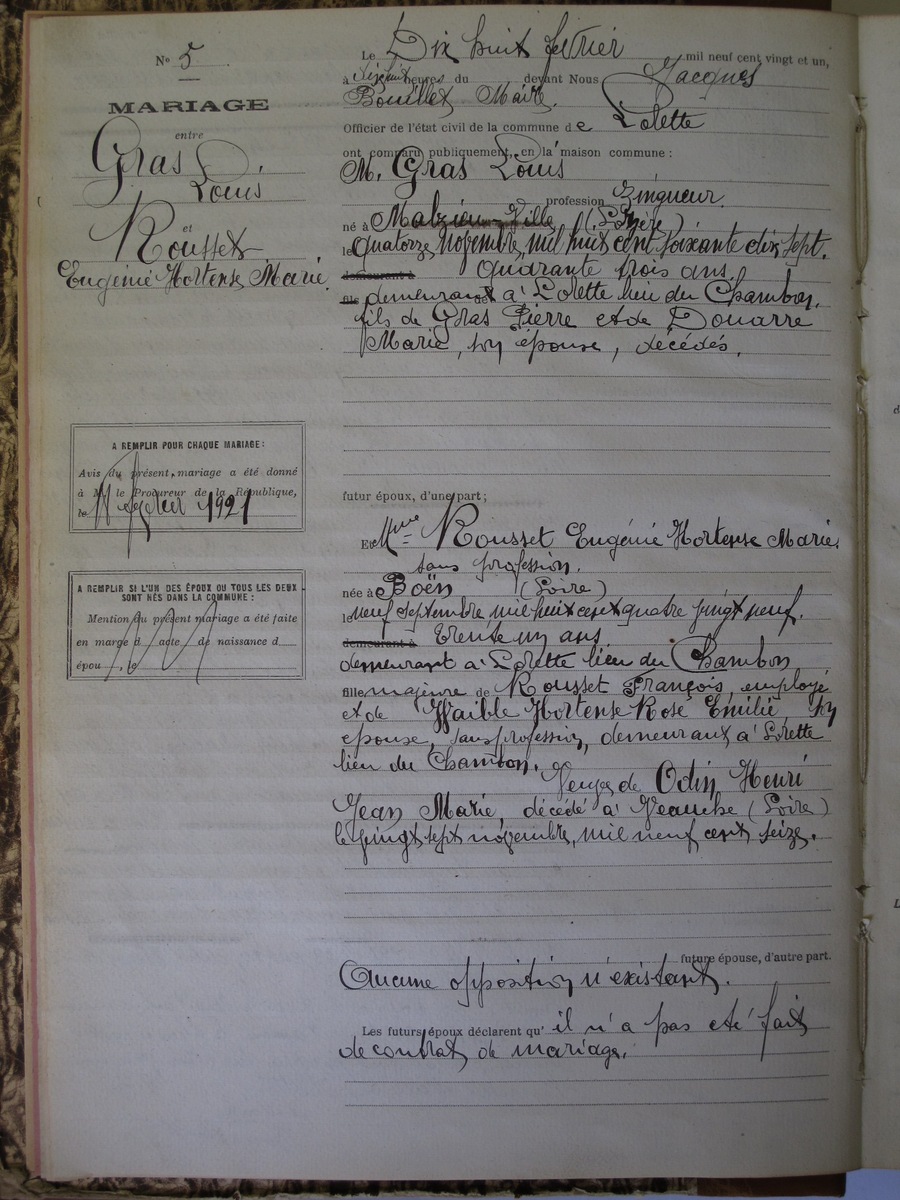 N° 5
MARIAGE
entre
Gras
Louis
et
Rousset
Eugénie Hortense Marie
A REMPLIR POUR CHAQUE MARIAGE :
Avis du présent mariage a été donné
à M. le Procureur de la République,
le février 1921
A REMPLIR SI L'UN DES ÉPOUX OU TOUS LES DEUX
SONT NÉS DANS LA COMMUNE :
Mention du présent mariage a été faite
en marge d acte de naissance d
épou , le
Le Dix huit février mil neuf cent vingt et un,
à heures du devant Nous Jacques
Bouillet Maire.
Officier de l'état civil de la commune de Lorette
ont comparu publiquement, en la maison commune :
M. Gras Louis
profession Zingueur
né à Malzieu-Ville (Lozère)
le quatorze novembre mil huit cent soixante dix sept.
demeurant à quarante trois ans.
fils demeurant à Lorette lieu du Chambon.
fils de Gras Pierre et de Douarre
Marie, son épouse, décédés.
futur époux, d'une part ;
Et Mme Rousset Eugénie Hortense Marie,
sans profession.
née à Boën (Loire)
le neuf septembre mil huit cent quatre vingt neuf.
demeurant à trente un ans
demeurant à Lorette lieu du Chambon
fille majeure de Rousset François, employé
et de Waible Hortense Rose Emilie, son
épouse, sans profession, demeurant à Lorette
lieu du Chambon.
Veuve de Odin Henri
Jean Marie, décédé à Veauche (Loire)
le vingt sept novembre, mil neuf cent seize.
future épouse, d'autre part.
Aucune opposition n'existant.
Les futurs époux déclarent qu' il n'a pas été fait
de contrat de mariage.